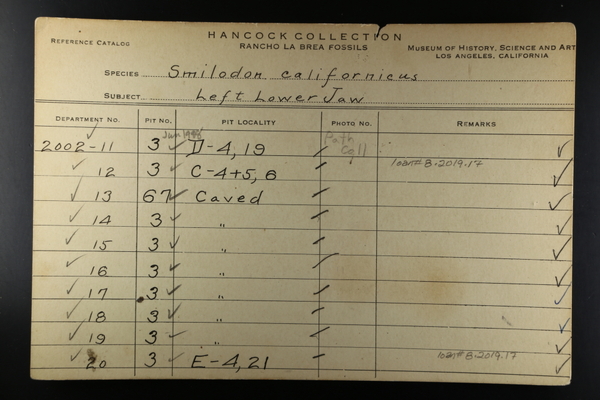 HANCOCK COLLECTION
REFERENCE CATALOG RANCHO LA BREA FOSSILS MUSEUM OF HISTORY, SCIENCE AND ART
LOS ANGELES, CALIFORNIA
SPECIES Smilodon californicus
SUBJECT Left Lower Jaw
DEPARTMENT NO. PIT NO. PIT LOCALITY PHOTO NO. REMARKS
2002-11 3 D-4, 19 Path
12 3 C-4+5, 6 loan# 8-2019.17
13 67 Caved
14 3 "
15 3 "
16 3 "
17 3 "
18 3 "
19 3 "
20 3 E-4, 21 loan# 8-2019.17